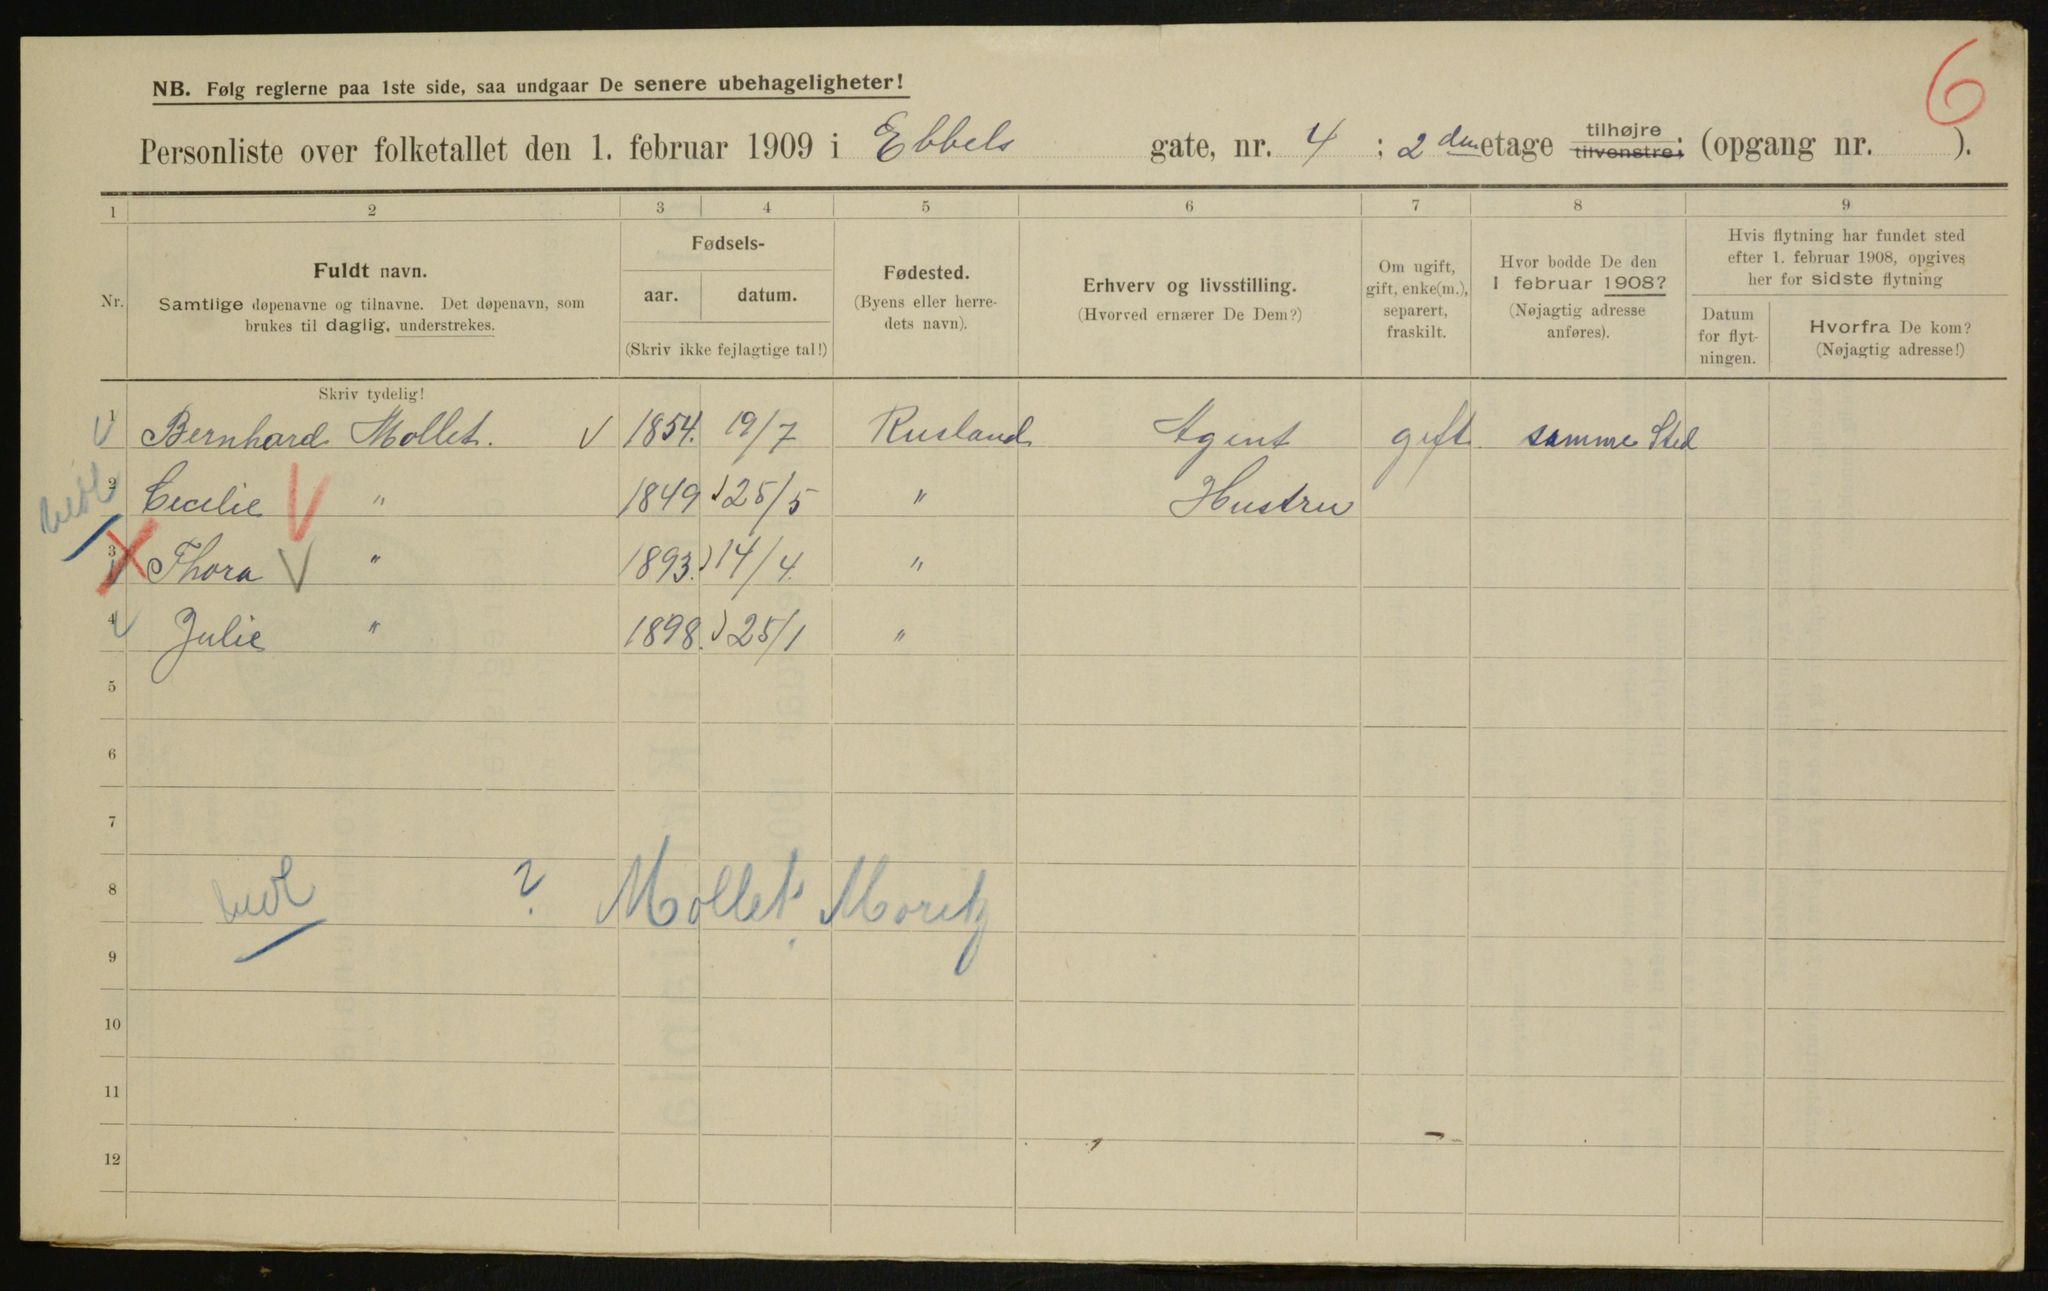 6
NB. Følg reglerne paa 1ste side, saa undgaar De senere ubehageligheter!
Personliste over folketallet den 1. februar 1909 i Ebbels gate, nr. 4 ; 2den etage tilhøjre tilvenstre; (opgang nr. ).
1 2 3 4 5 6 7 8 9
Nr.
Fuldt navn.
Samtlige døpenavne og tilnavne. Det døpenavn, som
brukes til daglig, understrekes.
Fødsels-
aar. datum.
(Skriv ikke fejlagtige tal!)
Fødested.
(Byens eller herre-
dets navn).
Erhverv og livsstilling.
(Hvorved ernærer De Dem?)
Om ugift,
gift, enke(m.),
separert,
fraskilt.
Hvor bodde De den
1 februar 1908?
(Nøjagtig adresse
anføres).
Hvis flytning har fundet sted
efter 1. februar 1908, opgives
her for sidste flytning
Datum
for flyt-
ningen.
Hvorfra De kom?
(Nøjagtig adresse!)
Skriv tydelig!
1 Bernhard Mollet. 1854. 19/7 Rusland Agent gift samme Sted
2 Cecilie " 1849 25/5 " Hustru
3 Thora " 1893. 14/4. "
4 Julie " 1898. 25/1 "
5
6
7
8 ? Mollet, Moritz
9
10
11
12